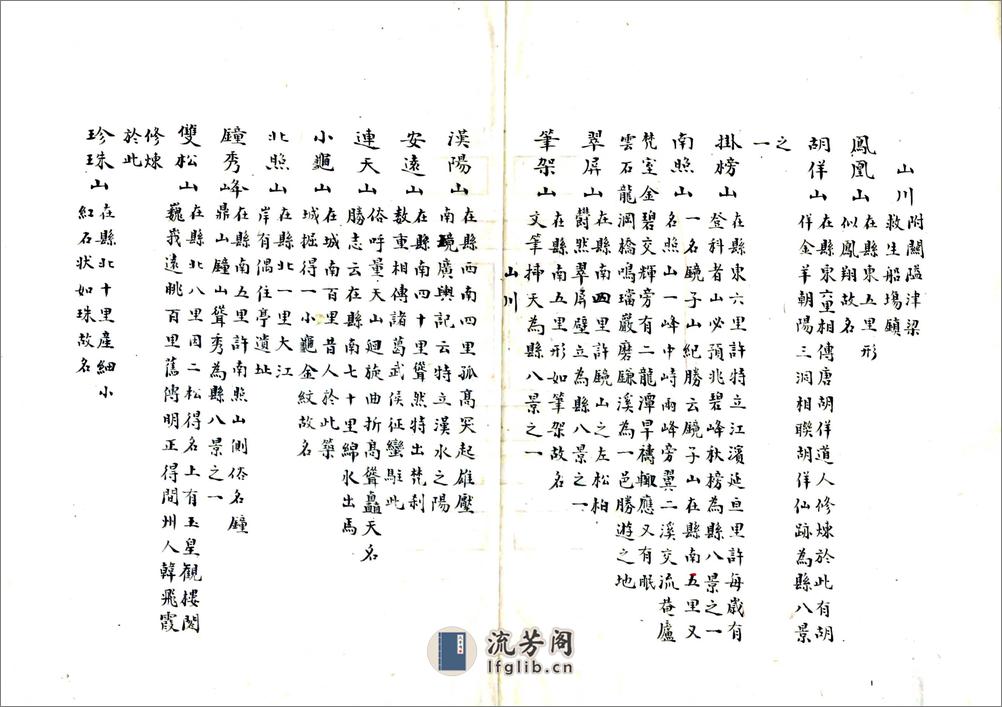 山川 附關隘津梁
救生船場鎮
鳳凰山 在縣東五里形
似鳳翔故名
胡佯山 在縣東童相傳唐胡佯道人修煉於此有胡
佯金羊朝陽三洞相聯胡佯仙跡為縣八景
之
一
掛榜山 在縣東六里許特立江濱延亘里許每歲有
登科者山必預兆碧峰秋榜為縣八景之一
南照山 一名鏡子山紀勝云鏡子山在縣南五里又
名照山一峰中峙兩峰旁翼二溪交流菴廬
梵室金碧交輝旁有二龍潭旱禱輙應又有眠
雲石龍洞橋鳴璫巖磨鐮溪為一邑勝遊之地
翠屏山 在縣南四里許鏡山之左松柏
欝然翠屏壁立為縣八景之一
筆架山 在縣南五里形如筆架故名
文筆插天為縣八景之一
山川
漢陽山 在縣西南四里孤高突起雄壓
南境廣輿記云特立漢水之陽
安遠山 在縣南四十里聳然特出梵刹
數重相傳諸葛武侯征蠻駐此
連天山 俗呼量天山廻旋曲折高聳矗天名
勝志云在縣南七十里綿水出焉
小龜山 在城南百里昔人於此築
城掘得一小龜金紋故名
北照山 在縣北一里大江
岸有偶住亭遺址
鐘秀峰 在縣南五里許南照山側俗名鐘
鼎山鐘山聳秀為縣八景之一
雙松山 在縣北八里因二松得名上有玉皇觀樓閣
巍峩遠眺百里舊傳明正得間州人韓飛霞
修煉
於此
珍珠山 在縣北十里產細小
紅石状如珠故名
流芳阁
lfglib.cn